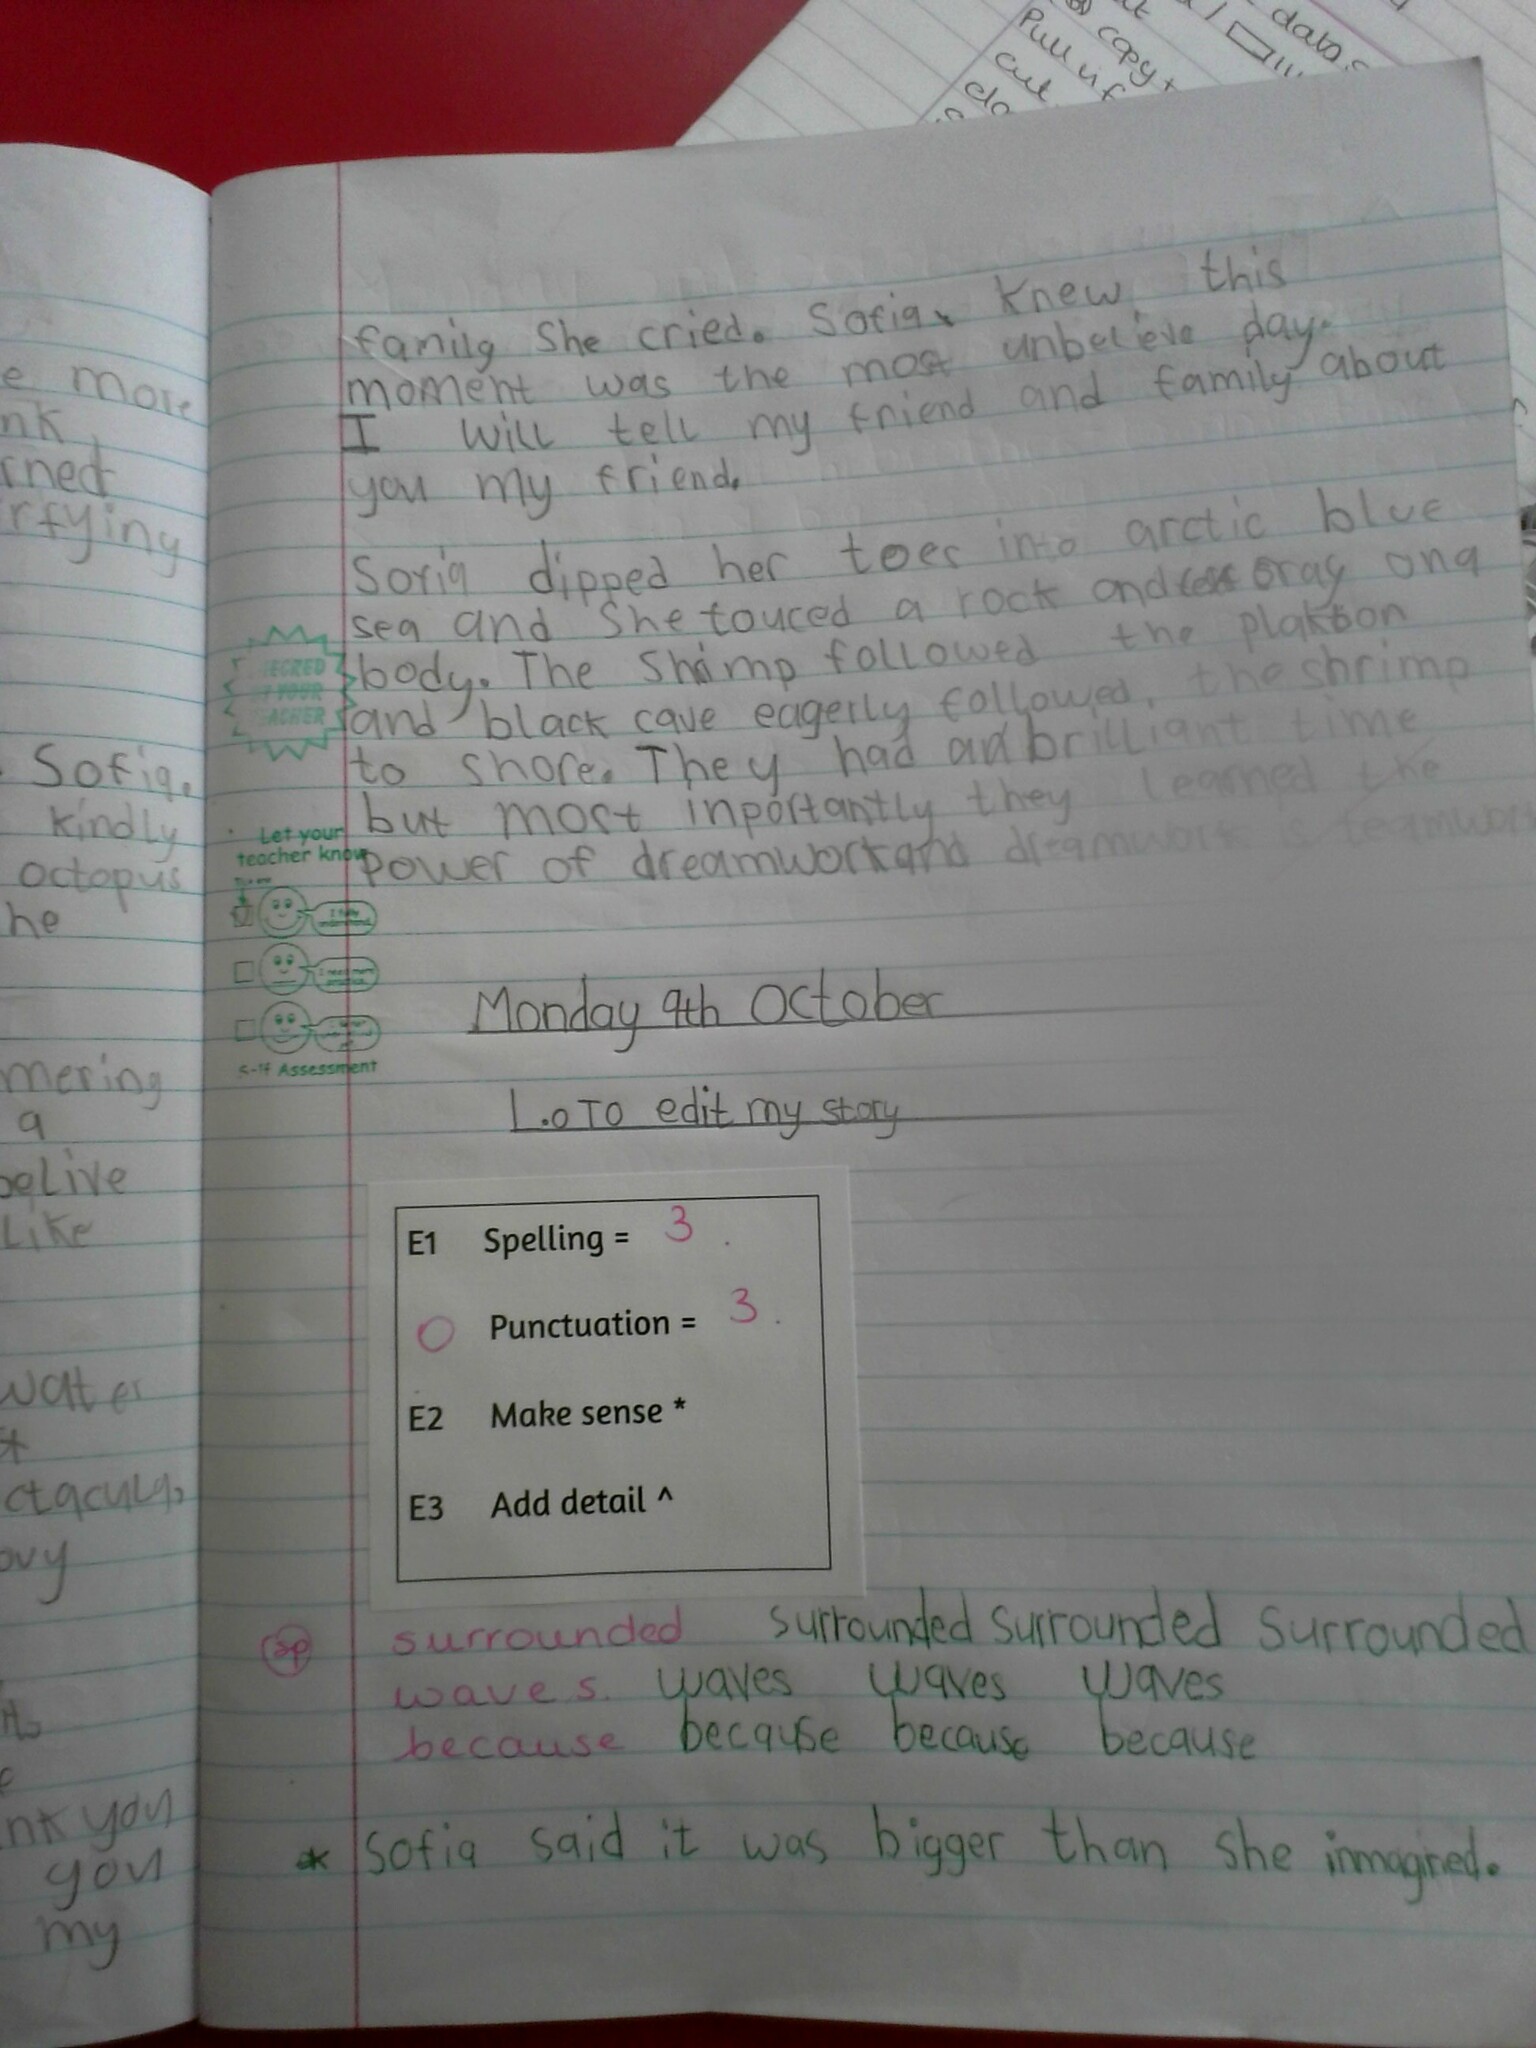 e more
nk
rned
rfying
Sofia,
kindly
octopus
he
mering
a
belive
Like
water
ctacular,
ovy
nk you
you
my
copy +
Pull if
cut
data
family She cried. Sofia knew this
moment was the most unbelieve day.
I will tell my friend and family about
you my friend.
Sofia dipped her toes into arctic blue
sea and She touced a rock and gray ona
body. The Shimp followed the plakton
and black cave eagerly followed, the shrimp
to shore. They had an brilliant time
but most inportantly they learned the
power of dreamwork and dreamwork is teamwork
Let your
teacher know
Monday 9th October
Self Assessment
L.O To edit my story
E1 Spelling = 3.
O Punctuation = 3.
E2 Make sense *
E3 Add detail ^
sp surrounded surrounded surrounded surrounded
waves. waves waves waves
because because because because
* Sofia said it was bigger than she inmagined.